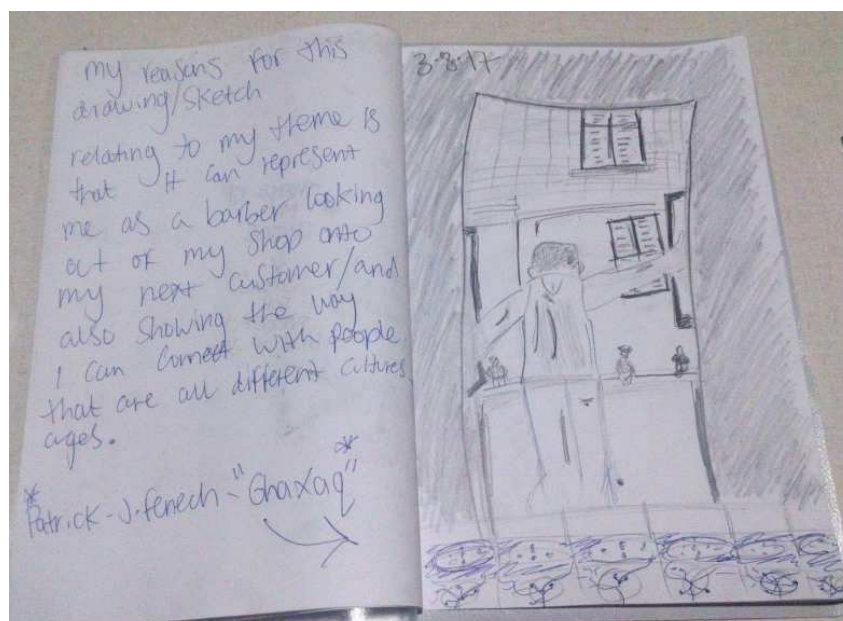 my reasons for this
drawing/sketch
relating to my theme is
that it can represent
me as a barber looking
out of my shop onto
my next customer/and
also showing the way
I can connect with people
that are all different cultures
ages.
*Patrick-J.fenech-"Ghaxaq"*
3-8-17